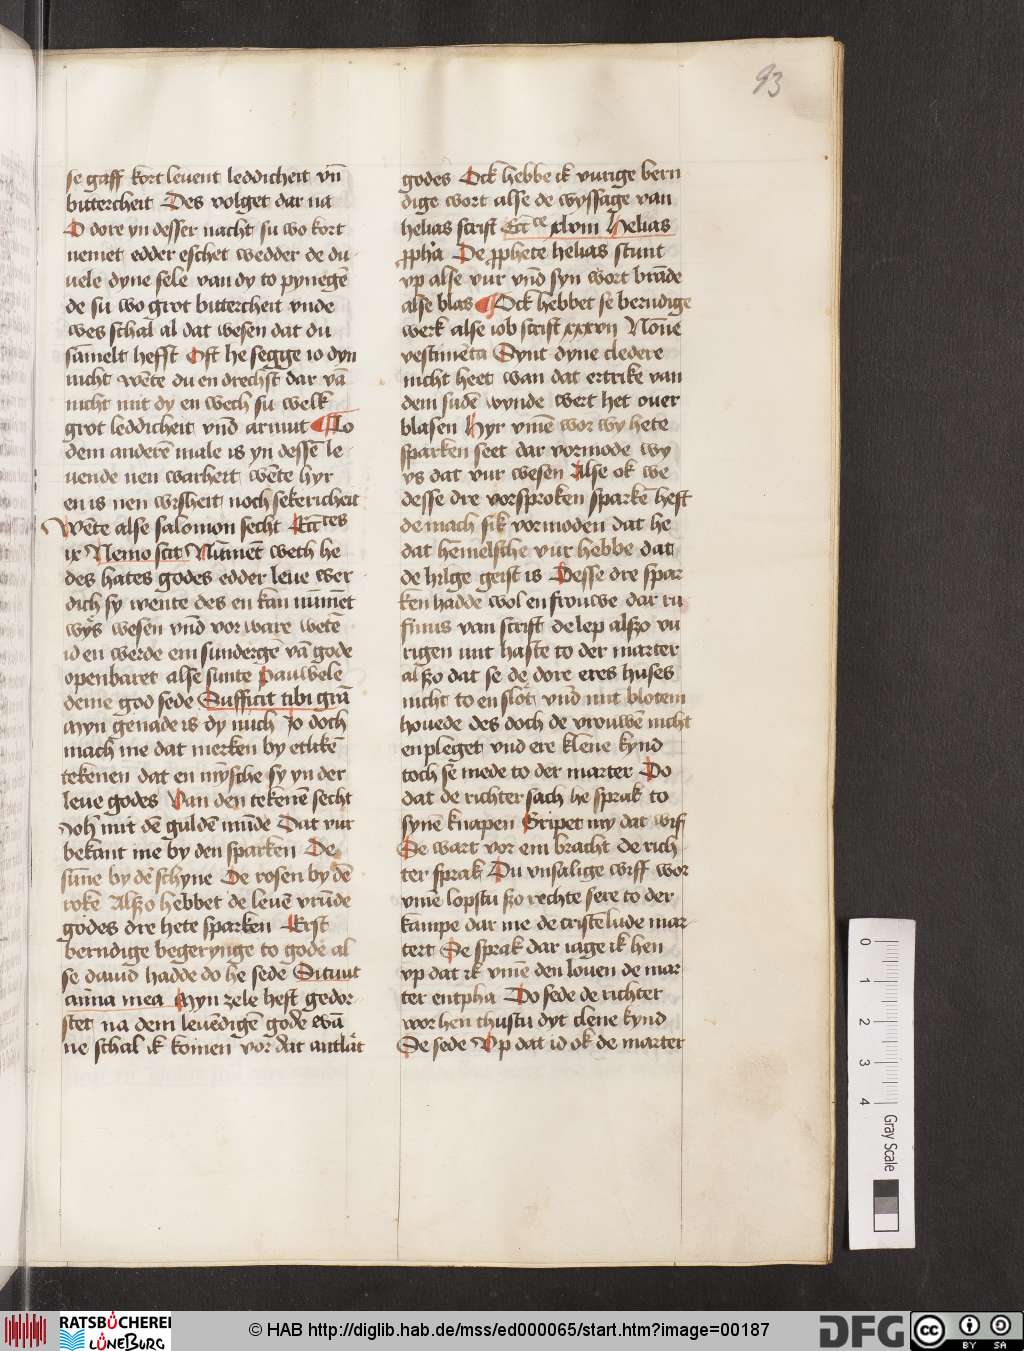 93
se gaff kort leuent leddicheit vn̄
bittercheit Des volget dar na
O dore yn desser nacht su wo kort
nemet edder eschet wedder de du
uele dyne sele van dy to pynegē
de su wo grot bittercheit vnde
wes schal al dat wesen dat du
samelt hefft Oft he segge io dyn
nicht wēte du en drechst dar vā
nicht mit dy en wech su welk
grot leddicheit vnd armut ¶ To
dem anderē male is yn dessē le
uende nen warheit wēte hyr
en is nen wisheit noch sekericheit
Wēte alse salomon secht Ecctes
ix Nemo scit Nūmēt weth he
des hates godes edder leue wer
dich sy wente des en kan nūmēt
wys wesen vnd vor ware wetē
id en werde em sundergē vā gode
openbaret alse sunte pauwele
deme god sede Sufficit tibi grā
Myn genade is dy nuch Jo doch
mach me dat merken by etlikē
tekenen dat en mȳsche sy yn der
leue godes Van den tekenē secht
Joh mit dē guldē mūde Dat vur
bekant me by den sparken De
sūne by dē schyne De rosen by dē
rokē Alszo hebbet de leuē vrūde
godes dre hete sparken Erst
berndige begerynge to gode al
se dauid hadde do he sede Sitiuit
anīa mea Myn zele heft gedor
stet na dem leuēdigē gode wā
ne schal ik komen vor dat antlat
godes Ock hebbe ik vurige bern
dige wort alse de wyssage van
helias scrift Ecce xlviii Helias
ꝓpha De ꝓphete helias stunt
vp alse vur vnd syn wort brāde
alse blas ¶ Ock hebbet se berndige
werk alse iob scrift xxxvii Nōne
vestimēta Synt dyne cledere
nicht heet wan dat ertrike van
dem sudē wynde wert het ouer
blasen Hyr vmē wor wy hete
sparken seet dar vormode wy
vs dat vur wesen Alse ok we
desse dre vorsproken sparkē heft
de mach sik vormoden dat he
dat hemelsche vur hebbe dat
de hilge geist is Desse dre spar
ken hadde wol en frouwe dar ru
finus van scrift de lep alszo vu
rigen mit haste to der marter
alszo dat se de dore eres huses
nicht to en slot vnd mit blotem
houede des doch de vrouwē nicht
en pleget vnd ere klene kynd
toch se mede to der marter Do
dat de richter sach he sprak to
synē knapen Gripet my dat wif
Se wart vor em bracht de rich
ter sprak Du vnsalige wiff wor
vmē lopstu szo rechte sere to der
kampe dar me de cristelude mar
tert Se sprak dar iage ik hen
vp dat ik vmē den louen de mar
ter entpha Do sede de richter
wor hen thustu dyt clene kynd
Se sede Vp dat id ok de marter
0
1
2
3
4
Gray Scale
RATSBÜCHEREI
LÜNEBURG
© HAB http://diglib.hab.de/mss/ed000065/start.htm?image=00187
DFG
cc
BY SA